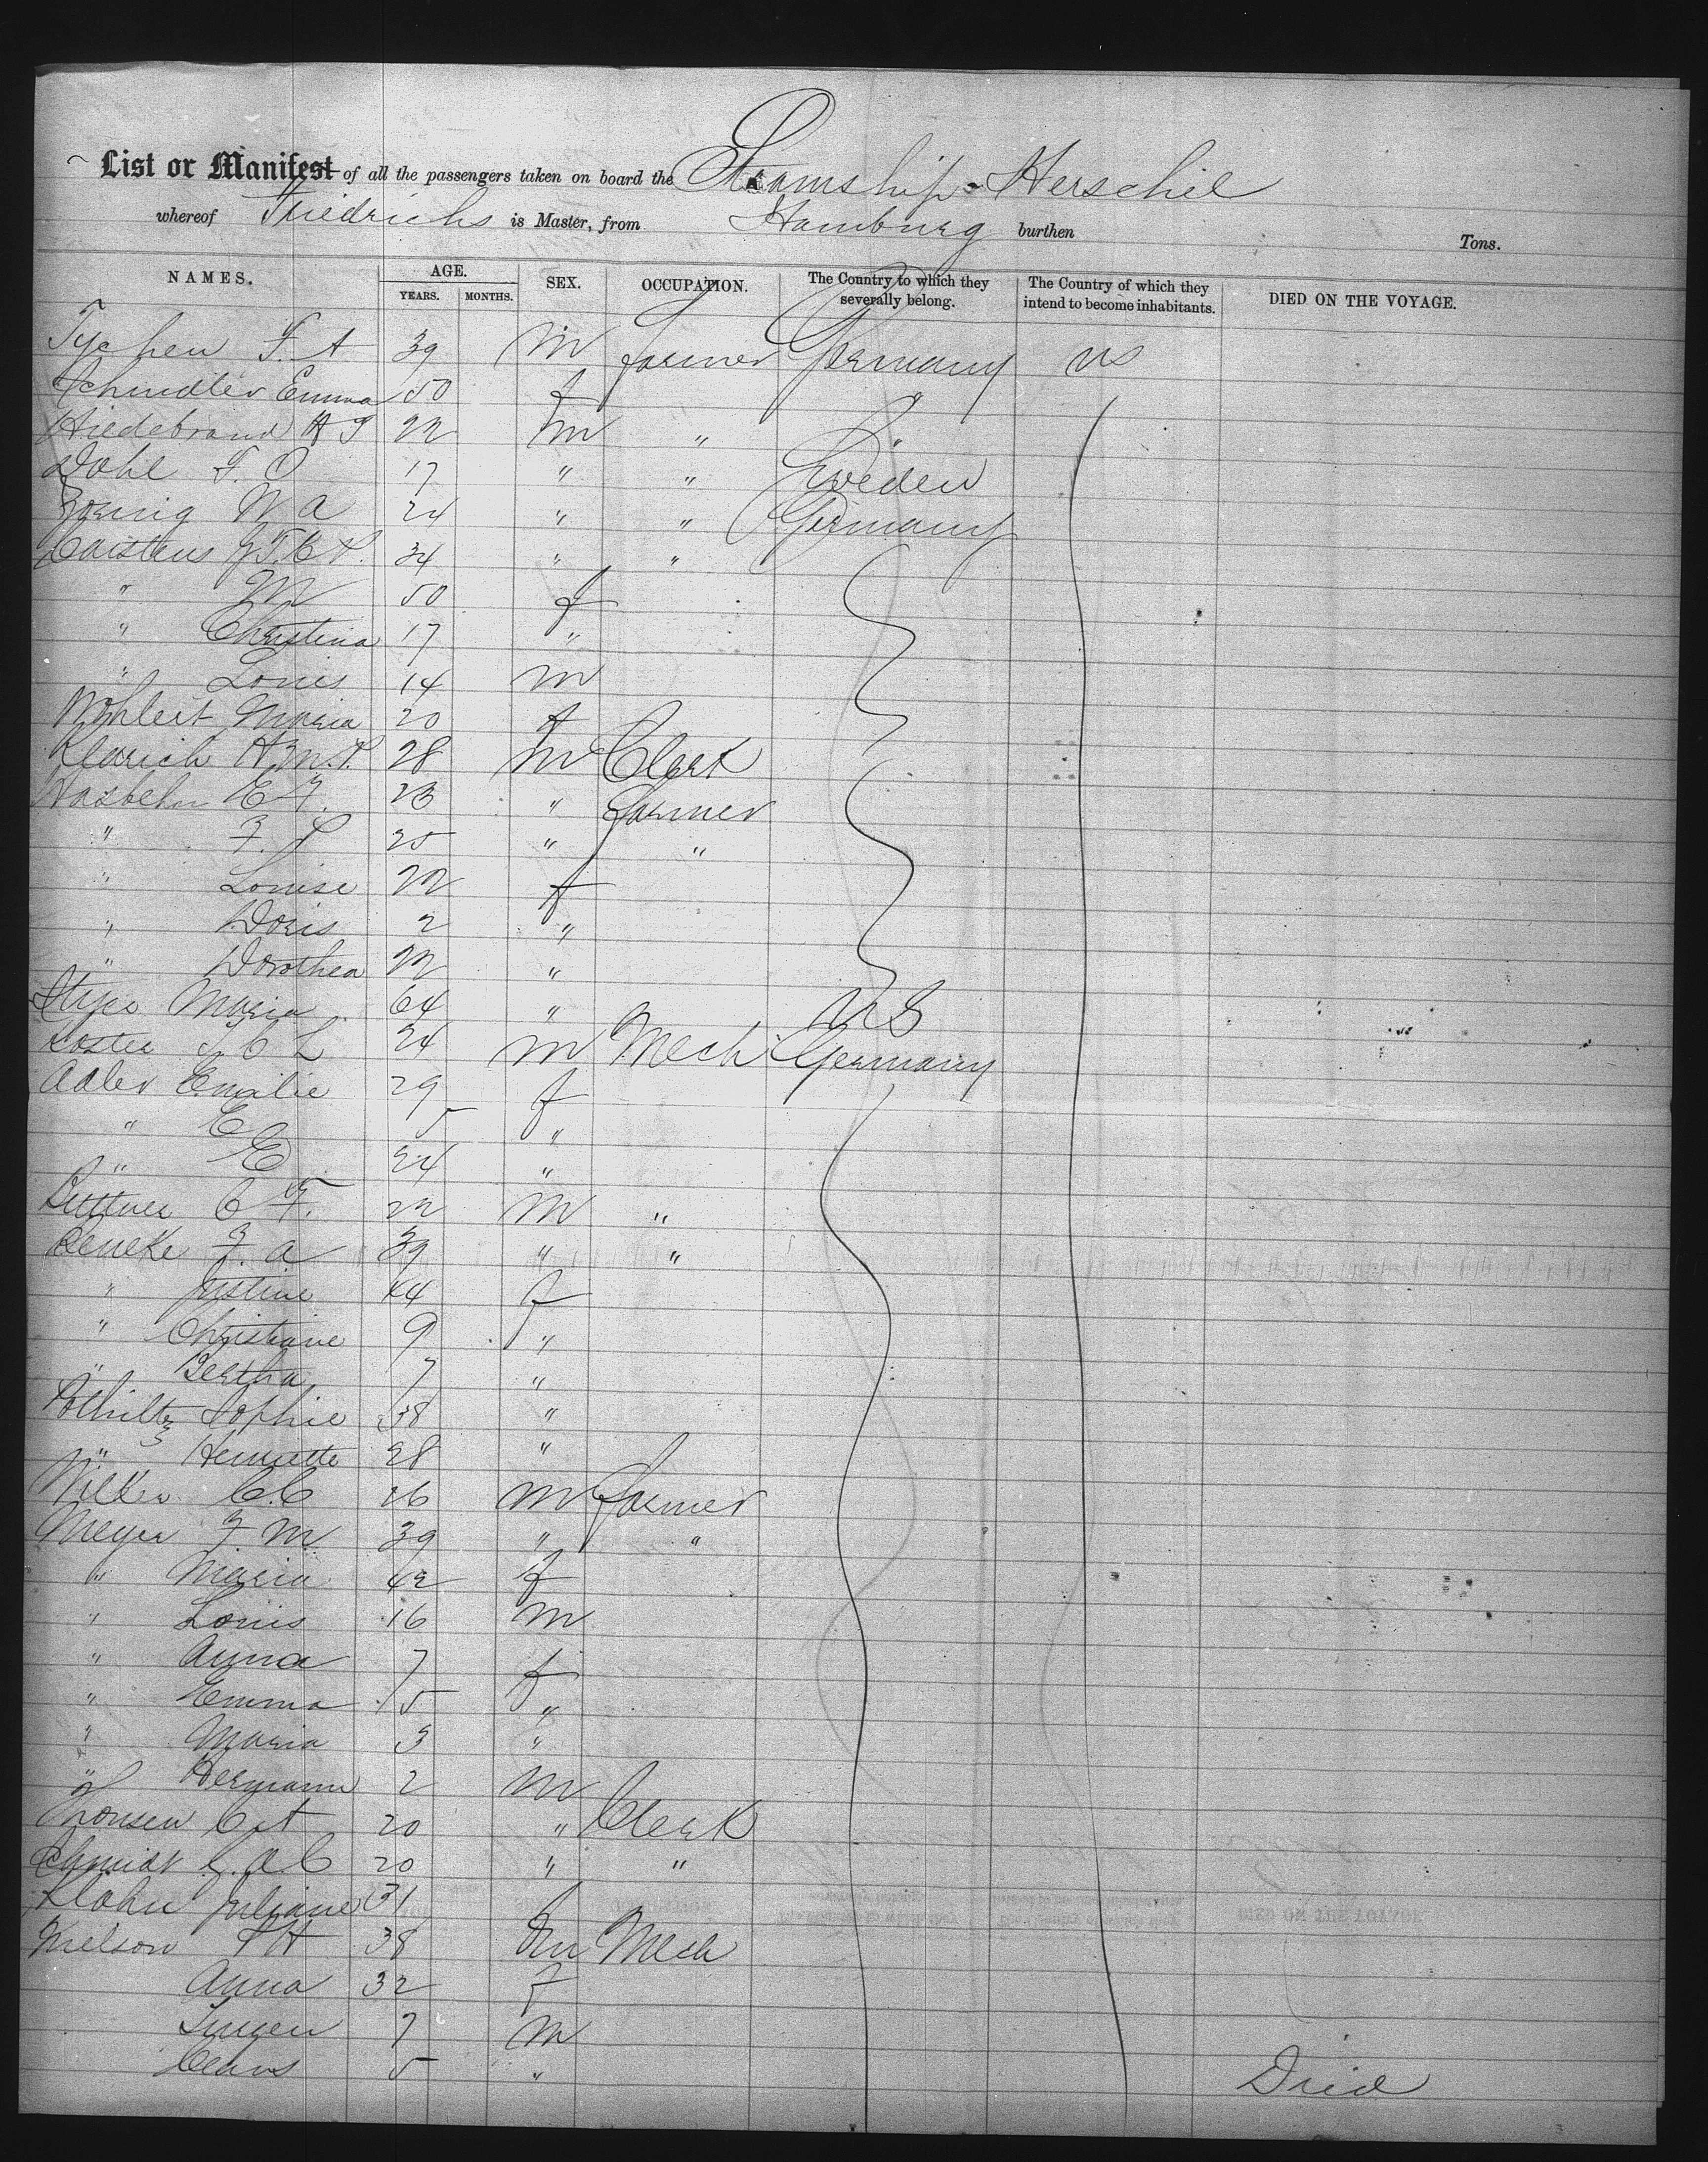 List or Manifest of all the passengers taken on board the Steamship Herschel
whereof Friedrichs is Master, from Hamburg burthen Tons.
NAMES. AGE. YEARS. MONTHS. SEX. OCCUPATION. The Country to which they severally belong. The Country of which they intend to become inhabitants. DIED ON THE VOYAGE.
Tychen F. A 39 M farmer Germany US
Schindler Emma 50 f
Hildebrand 22 M " "
Dohl F. O 17 " " Sweden
W A 24 " " Germany
34 " "
" M 50 f
" Christina 17 "
" Louis 14 M
Wohlert Maria 20 f
28 M Clerk
E F. 23 " Farmer
" F. 25 " "
" Louise 22 f
" Doris 2 "
" Dorothea 22 "
Maria 64 " US
24 M Mech Germany
Adler Emilie 29 f
" E 5 "
" E 24 "
Buttner C F. 22 M "
Beneke F. A 39 " "
" Justine 44 f
" Christiane 9 "
" Bertha 7 "
Sophie 38 "
" Henriette 28 "
Wilken C. C 26 M Farmer
Meyer F. M 39 " "
" Maria 42 f
" Louis 16 M
" Anna 7 f
" Emma 5 "
" Maria 3 "
" Hermann 2 M
20 " Clerk
Schmidt C. A. C 20 " "
Juliane 31
Nielson 38 M Mech
Anna 32 f
7 M
5 " Died